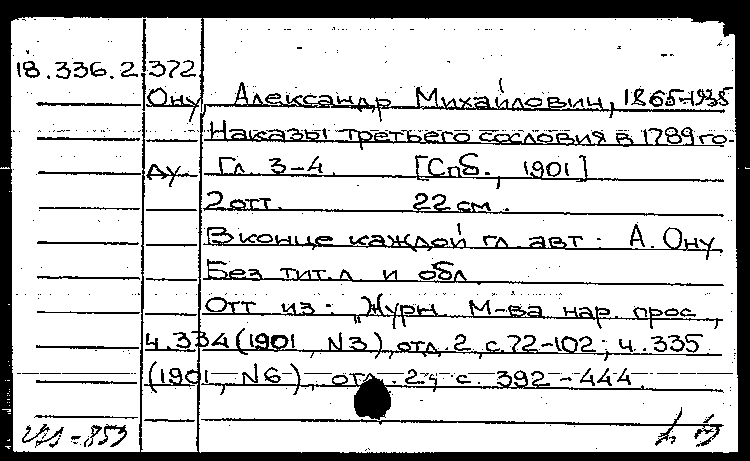 18.336.2.372
Ону, Александр Михайлович, 1865-1935
Наказы третьего сословия в 1789 го-
ду Гл. 3-4. [Спб., 1901]
2 отт. 22 см.
В конце каждой гл. авт: А. Ону
Без тит.л и обл.
Отт из: „Журн М-ва нар. прос.,
ч.334 (1901, N3), отд. 2, с. 72-102; ч. 335
(1901, N6), отд. 2, с. 392-444.